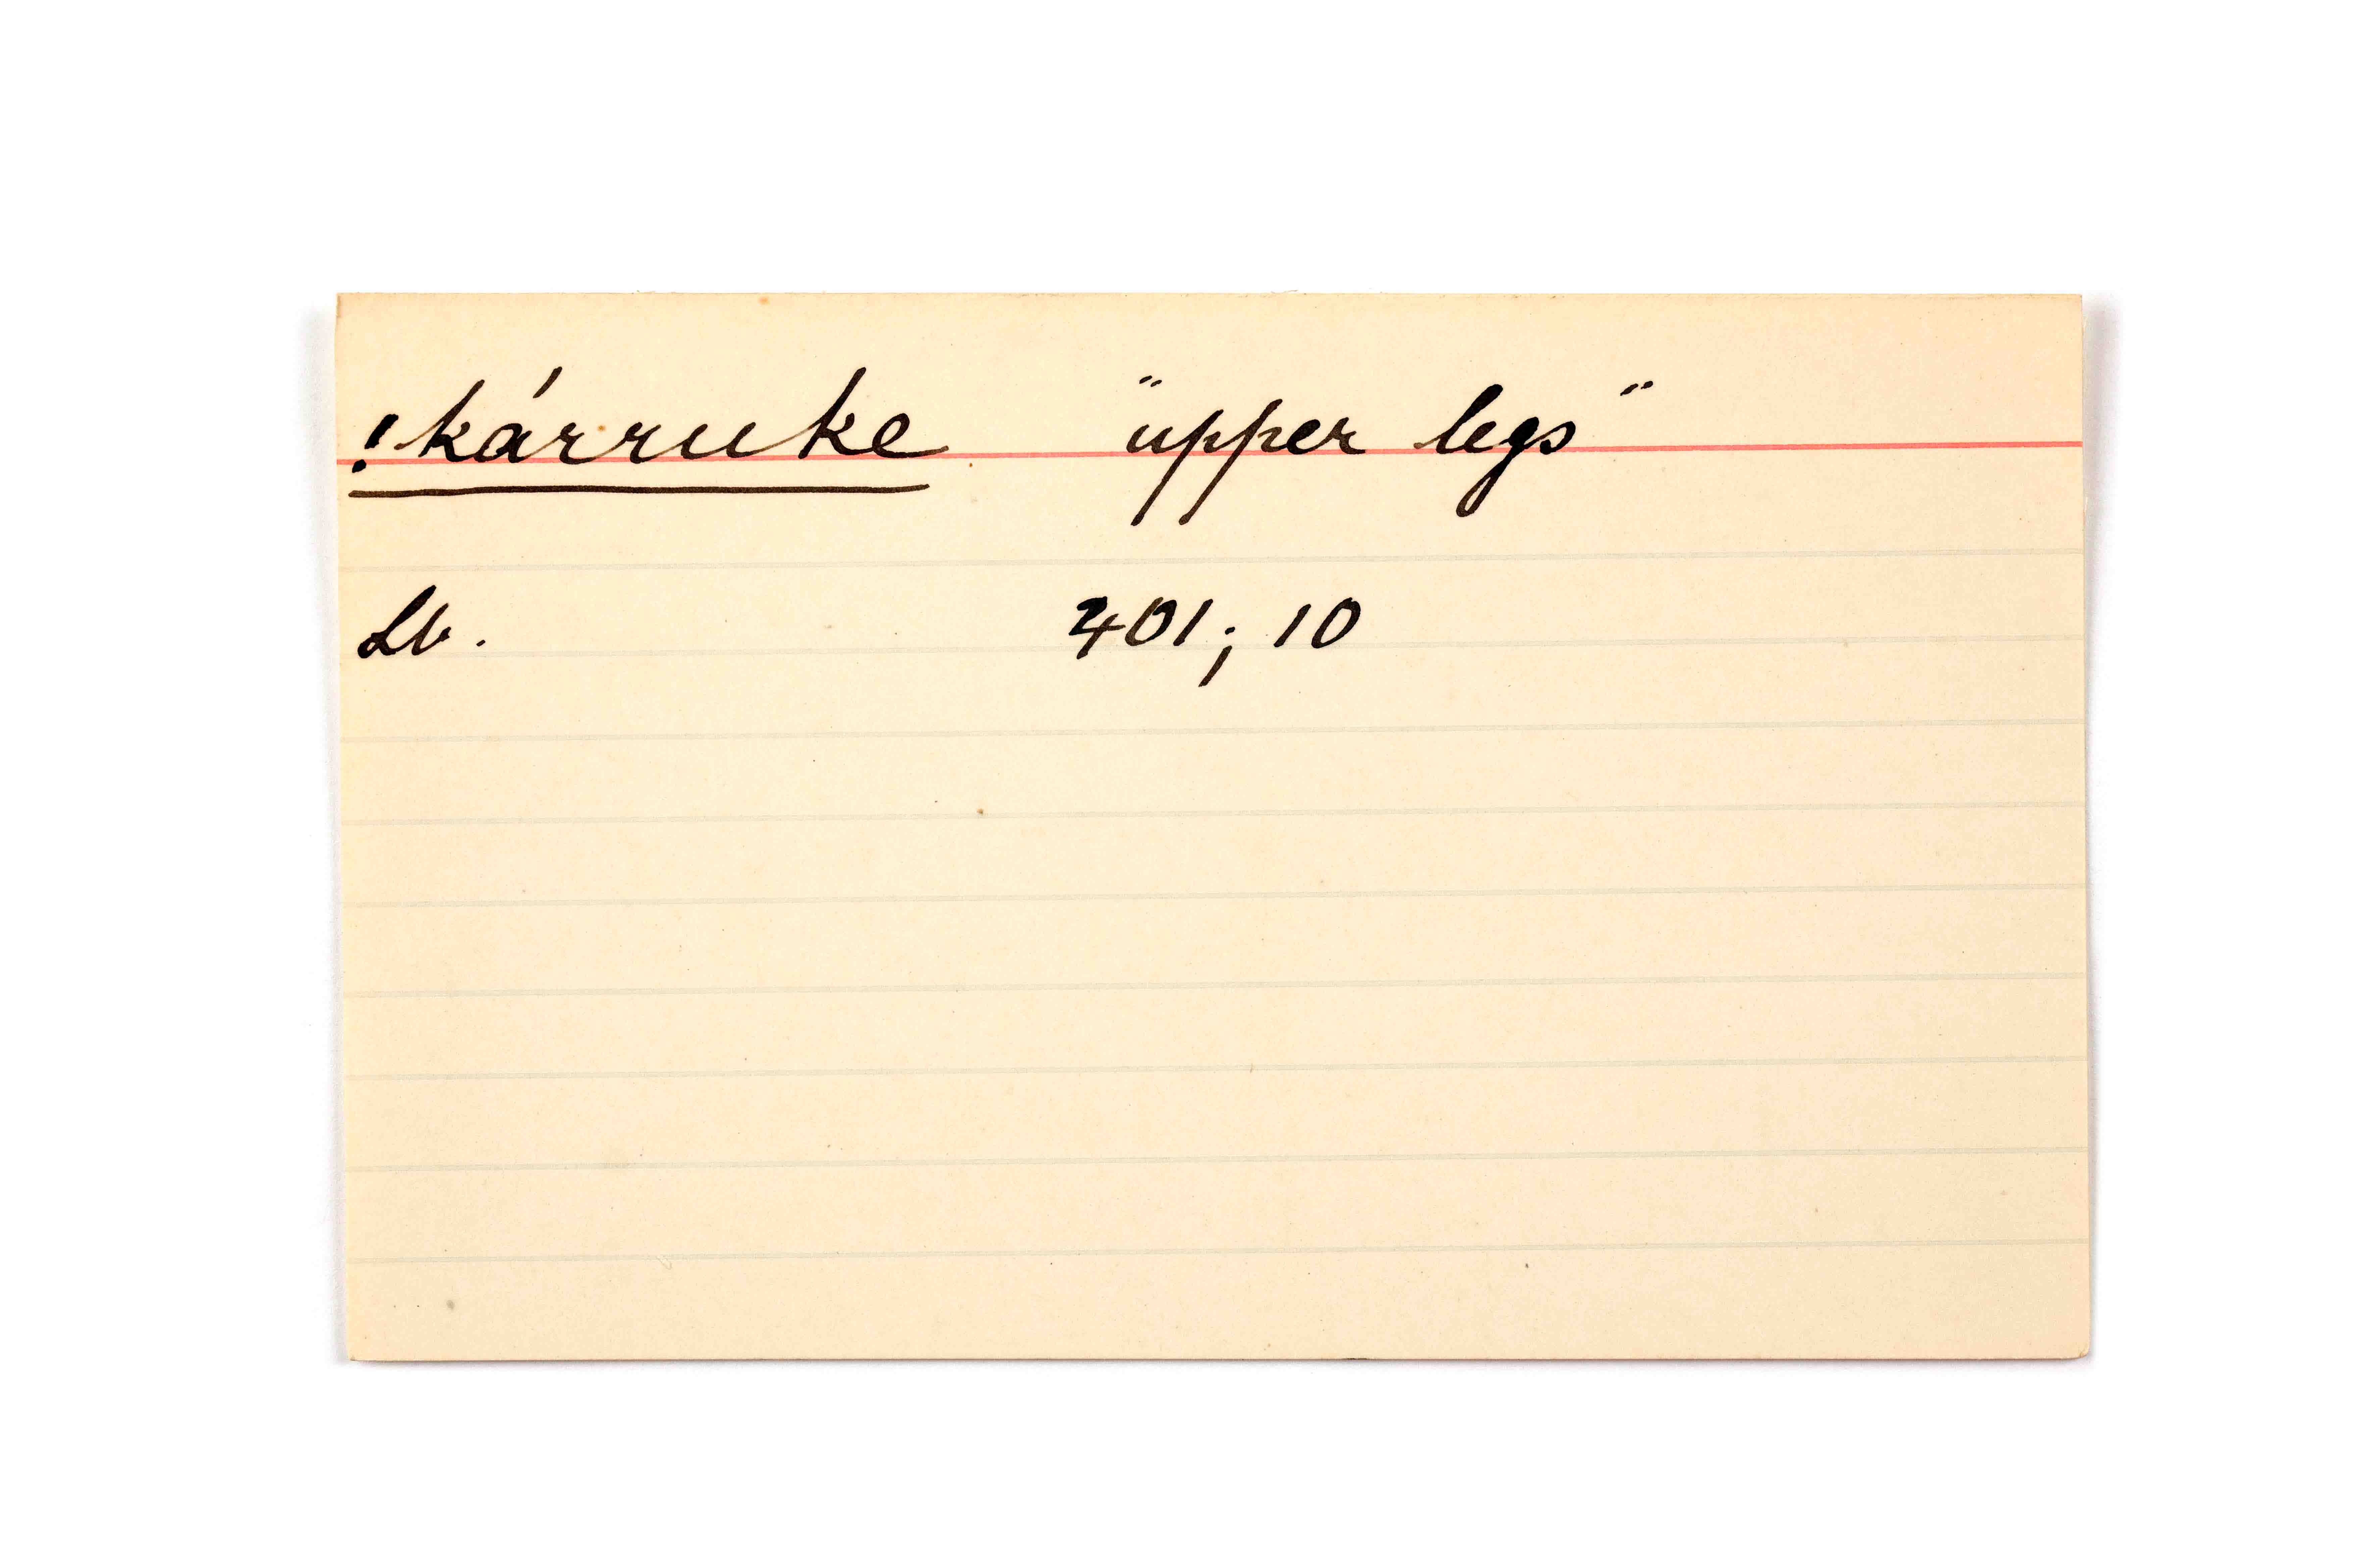 !kárruke "upper legs"
Lb. 401; 10